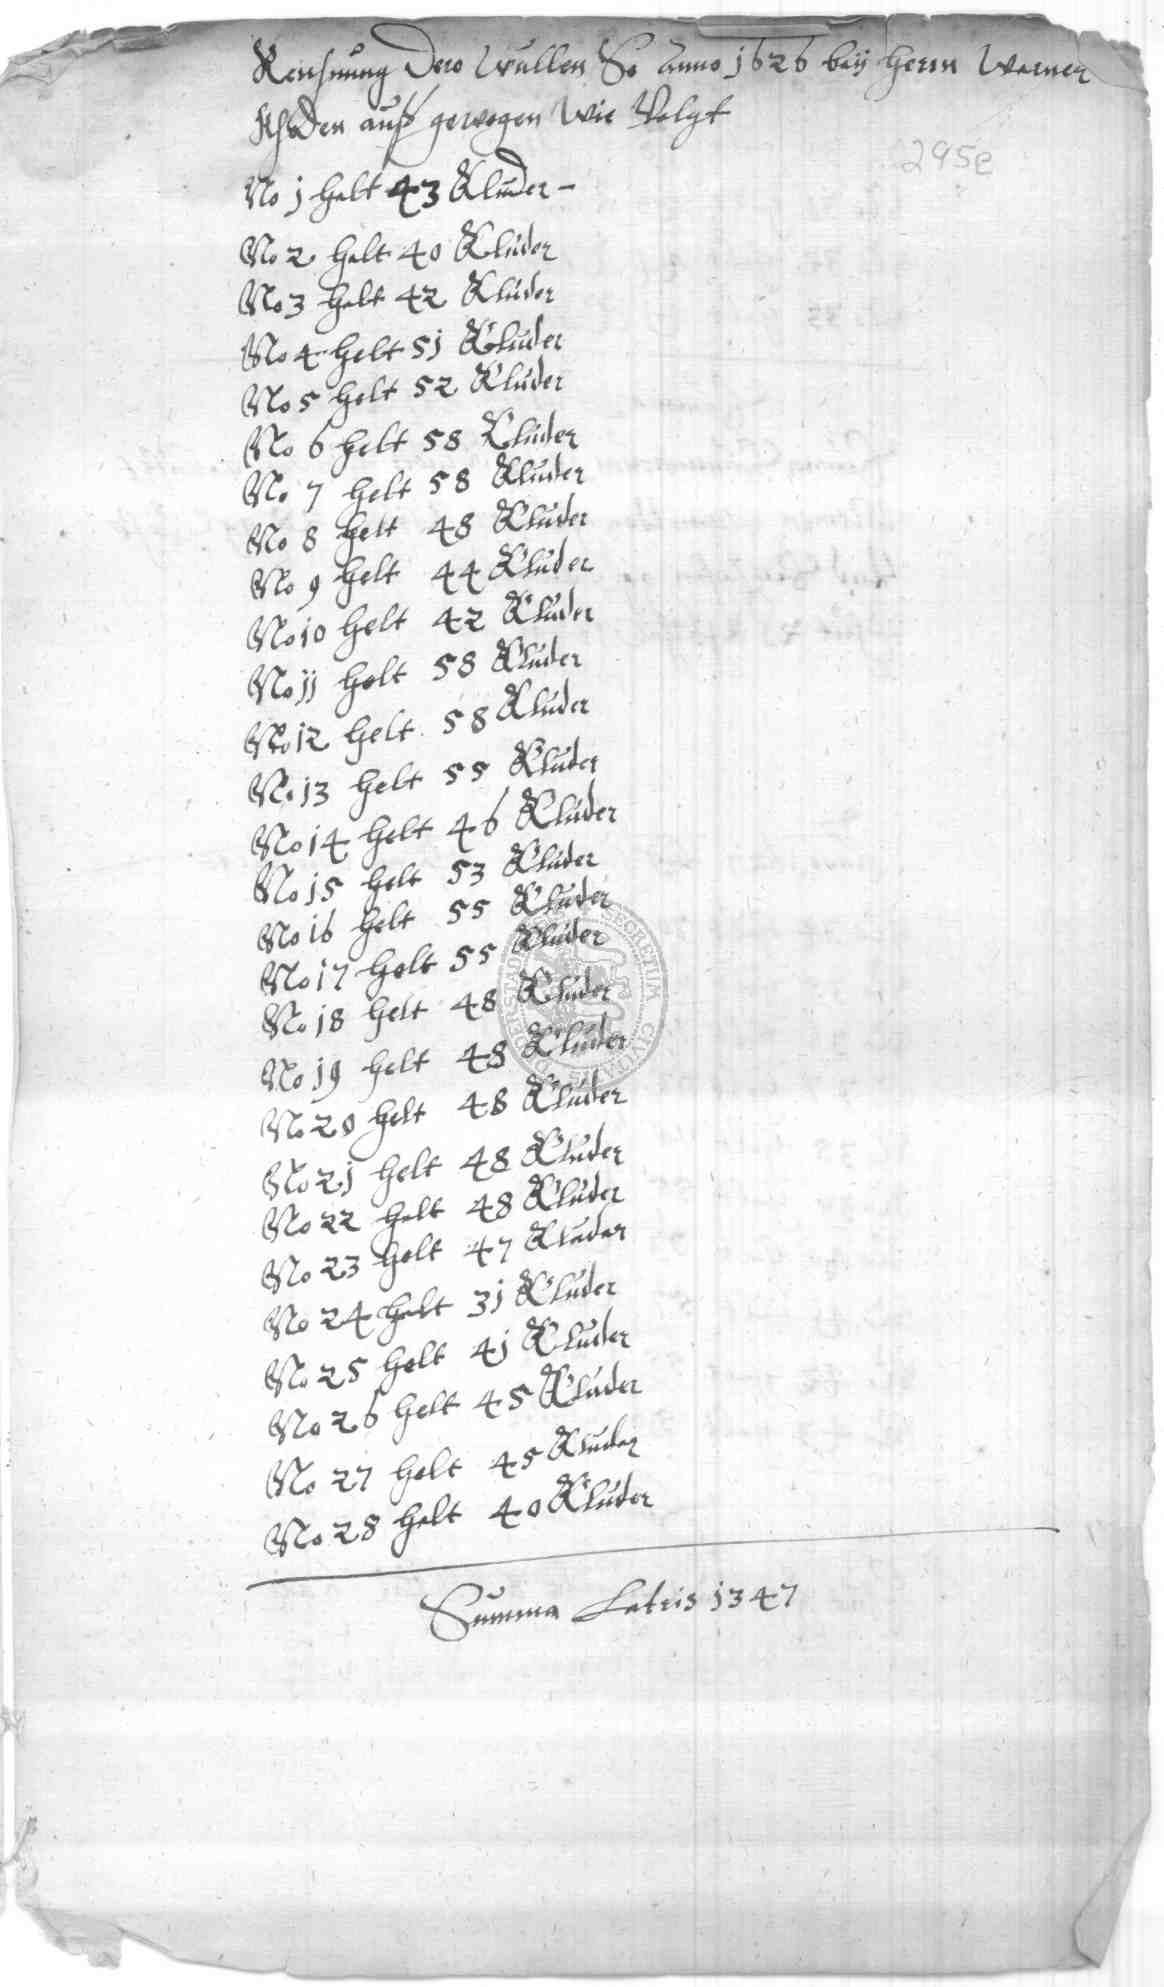 Rechnung Dero Wullen So Anno 1626 beÿ Herrn Warner
auß gewogen Wie Volgt
295e
No 1 helt 43 Kluder -
No 2 helt 40 Kluder
No 3 helt 42 Kluder
No 4 helt 51 Kluder
No 5 helt 52 Kluder
No 6 helt 58 Kluder
No 7 helt 58 Kluder
No 8 helt 48 Kluder
No 9 helt 44 Kluder
No 10 helt 42 Kluder
No 11 helt 58 Kluder
No 12 helt 58 Kluder
No 13 helt 55 Kluder
No 14 helt 46 Kluder
No 15 helt 53 Kluder
No 16 helt 55 Kluder
No 17 helt 55 Kluder
No 18 helt 48 Kluder
No 19 helt 48 Kluder
No 20 helt 48 Kluder
No 21 helt 48 Kluder
No 22 helt 48 Kluder
No 23 helt 47 Kluder
No 24 helt 31 Kluder
No 25 helt 41 Kluder
No 26 helt 45 Kluder
No 27 helt 45 Kluder
No 28 helt 40 Kluder
Summa Latris 1347